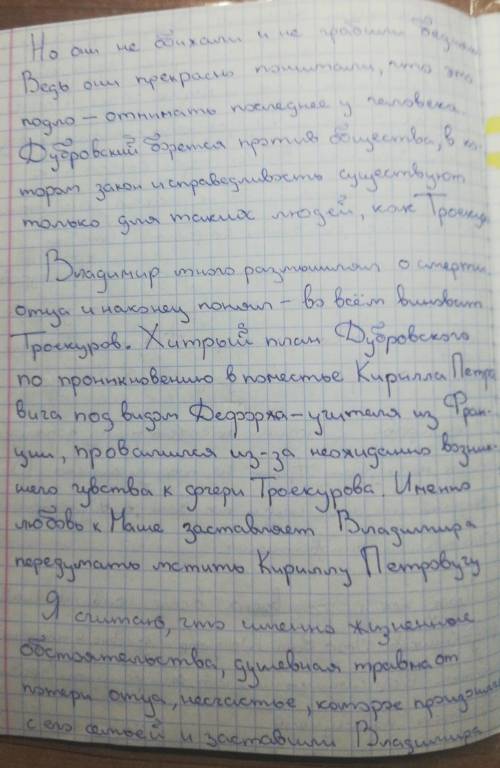 Но они не обижали и не грабили бедных
Ведь они прекрасно понимали, что это
подло - отнимать последнее у человека.
Дубровский борется против общества, в ко-
тором закон и справедливость существуют
только для таких людей, как Троекур
Владимир много размышлял о смерти
отца и наконец понял - во всём виноват
Троекуров. Хитрый план Дубровского
по проникновению в поместье Кирилла Петро
вича под видом Дефоржа - учителя из Фран-
ции, провалился из-за неожиданно возник-
шего чувства к дочери Троекурова. Именно
любовь к Маше заставляет Владимира
передумать мстить Кириллу Петровичу
Я считаю, что именно жизненные
обстоятельства, душевная травма от
потери отца, несчастье, которое произошло
с его семьёй и заставили Владимира